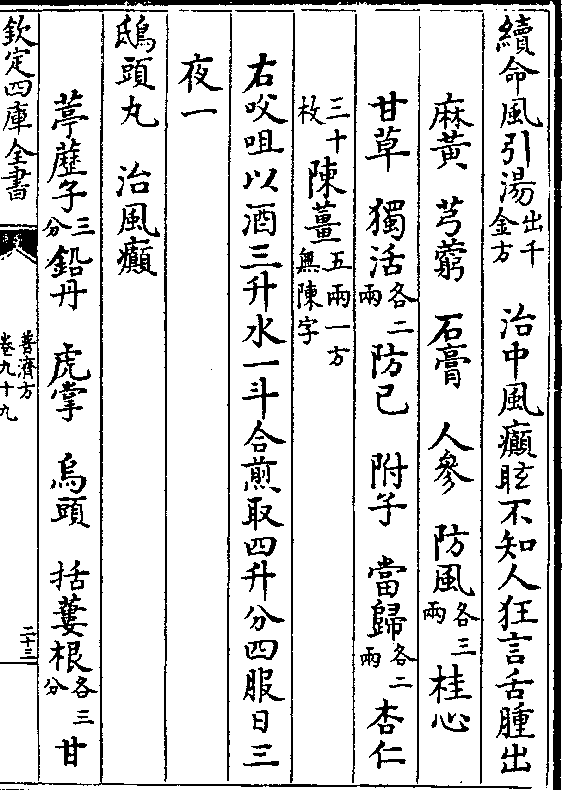 續命風引湯出千金方　治中風癲眩不知人狂言舌腫出
麻黄　芎藭　石膏　人參　防風各三兩桂心
甘草　獨活各二兩防已　附子　當歸各二兩杏仁
三十枚陳薑五兩一方無陳字
右㕮咀以酒三升水一斗合煎取四升分四服日三
夜一
鴟頭丸　治風癲
葶藶子三分鉛丹　虎掌　烏頭　括蔞根各三分甘
欽定四庫全書
普濟方
卷九十九
二十三